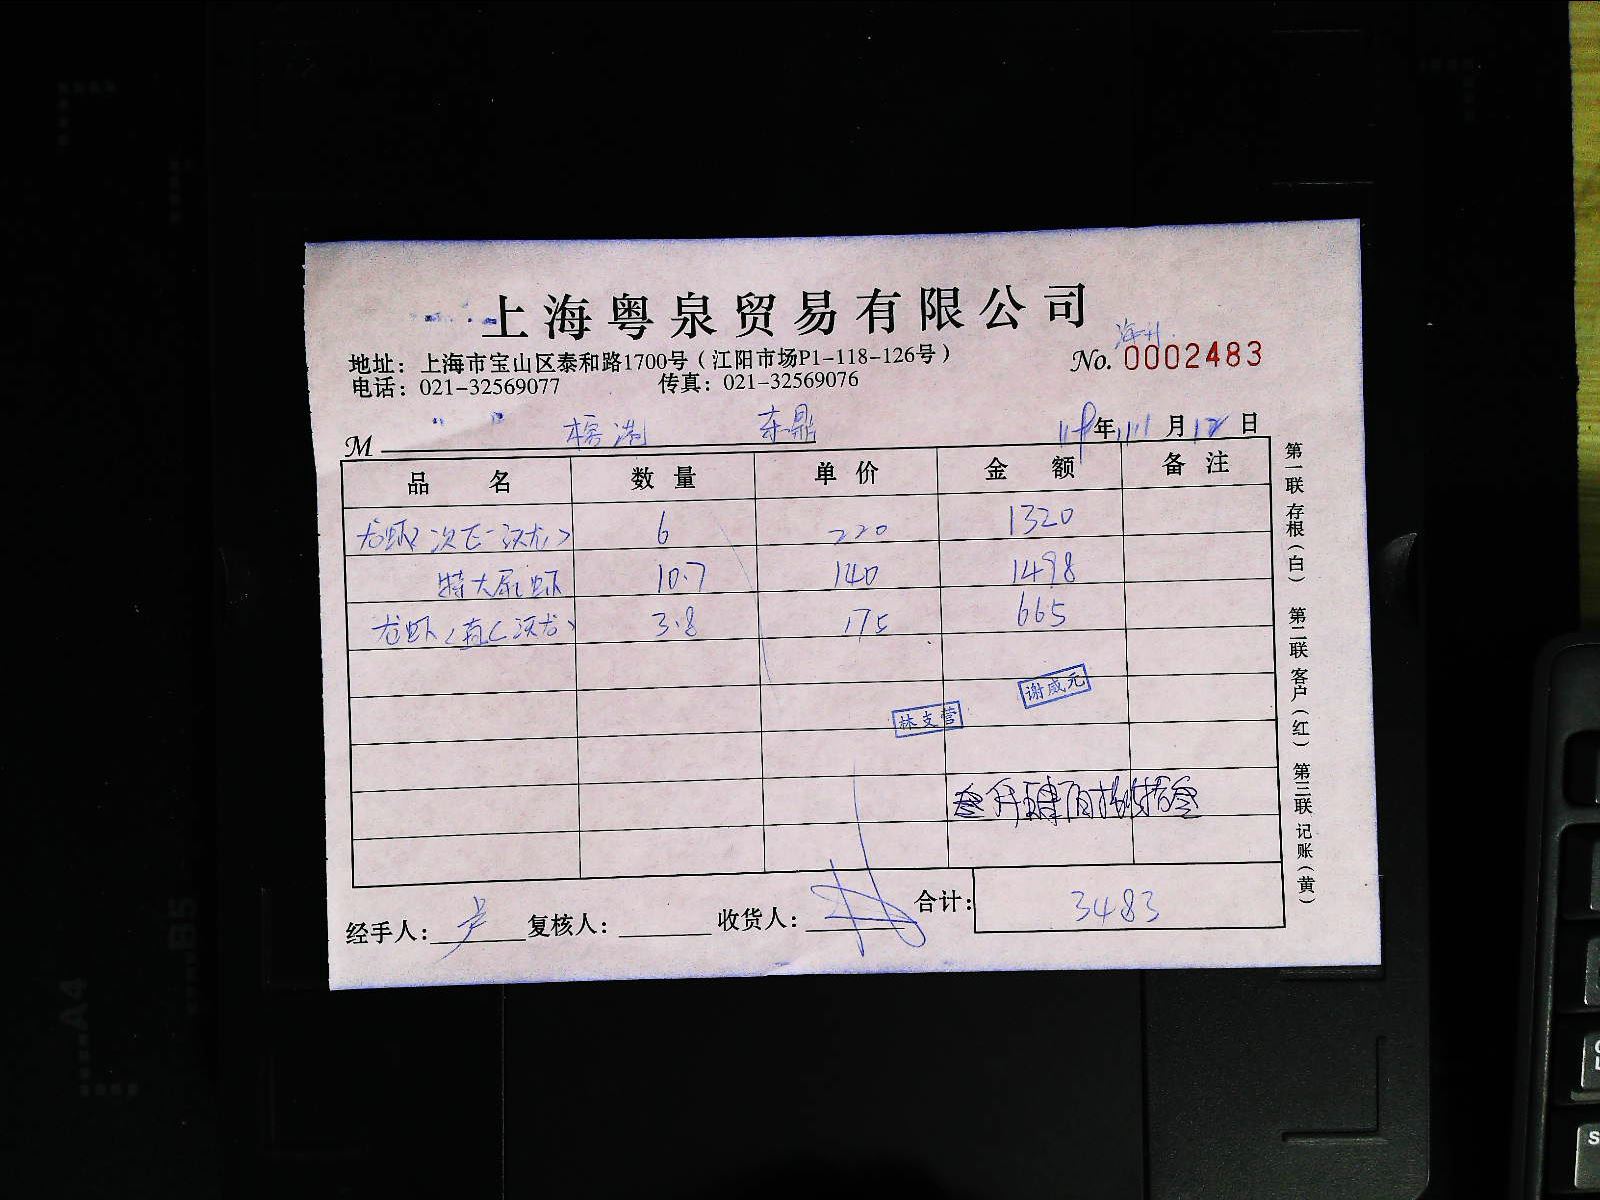 上海粤泉贸易有限公司
地址：上海市宝山区泰和路1700号（江阳市场P1-118-126号）
No. 0002483
电话：021-32569077 传真：021-32569076
M 东鼎 年 月 12 日
品名 数量 单价 金额 备注
龙虾 6 220 1320
特大尿虾 10.7 140 1498
龙虾 3.8 175 665
谢威元
林支营
叁仟肆佰捌拾叁
合计： 3483
经手人： 复核人： 收货人：
第一联 存根（白） 第二联 客户（红） 第三联 记账（黄）
B5
A4